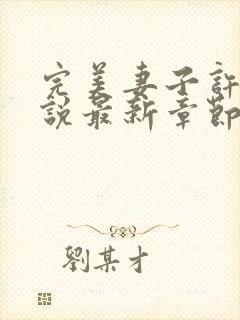 完美妻子許
說最新章節
劉某才